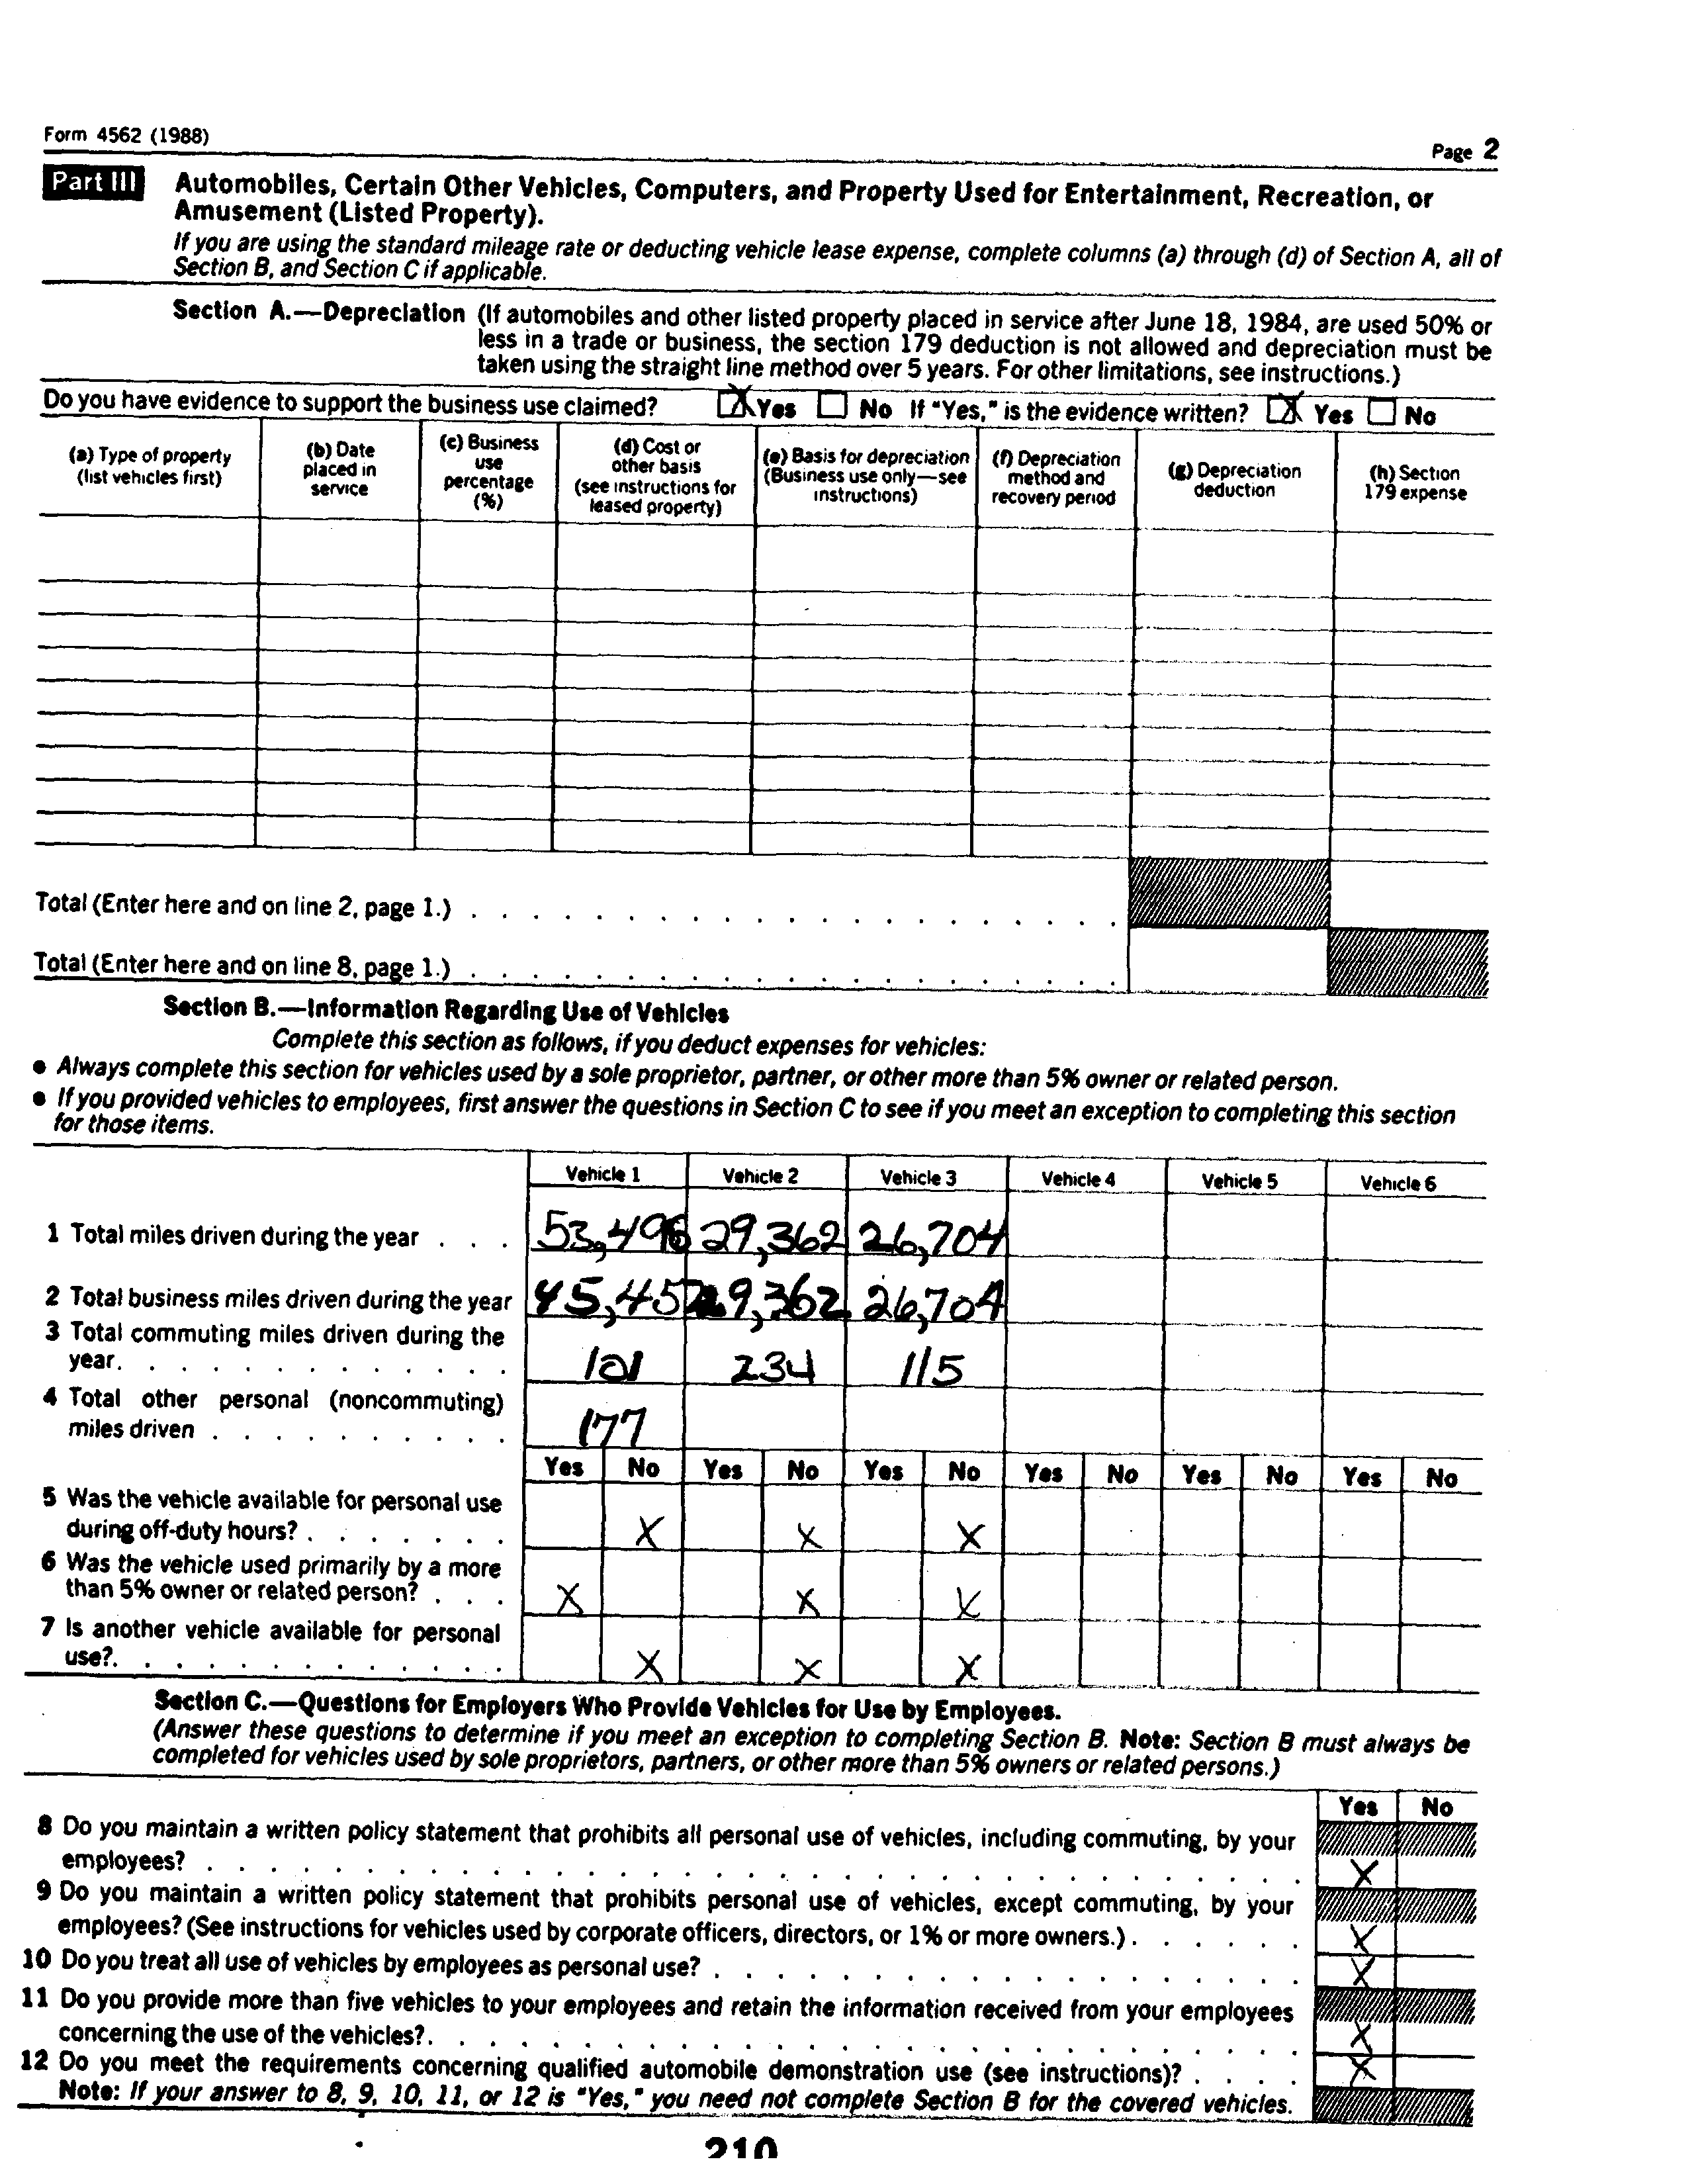 Form 4562 (1988)
Page 2
Part III Automobiles, Certain Other Vehicles, Computers, and Property Used for Entertainment, Recreation, or
Amusement (Listed Property).
If you are using the standard mileage rate or deducting vehicle lease expense, complete columns (a) through (d) of Section A, all of
Section B, and Section C if applicable.
Section A.—Depreciation (If automobiles and other listed property placed in service after June 18, 1984, are used 50% or
less in a trade or business, the section 179 deduction is not allowed and depreciation must be
taken using the straight line method over 5 years. For other limitations, see instructions.)
Do you have evidence to support the business use claimed? X Yes No If "Yes," is the evidence written? X Yes No
(a) Type of property
(list vehicles first)
(b) Date
placed in
service
(c) Business
use
percentage
(%)
(d) Cost or
other basis
(see instructions for
leased property)
(e) Basis for depreciation
(Business use only—see
instructions)
(f) Depreciation
method and
recovery period
(g) Depreciation
deduction
(h) Section
179 expense
Total (Enter here and on line 2, page 1.) . . . . . . . . . . . . . . . . . . . . .
Total (Enter here and on line 8, page 1.) . . . . . . . . . . . . . . . . . . . . .
Section B.—Information Regarding Use of Vehicles
Complete this section as follows, if you deduct expenses for vehicles:
● Always complete this section for vehicles used by a sole proprietor, partner, or other more than 5% owner or related person.
● If you provided vehicles to employees, first answer the questions in Section C to see if you meet an exception to completing this section
for those items.
Vehicle 1 Vehicle 2 Vehicle 3 Vehicle 4 Vehicle 5 Vehicle 6
1 Total miles driven during the year . . . 53,496 29,362 26,704
2 Total business miles driven during the year 29,362 26,704
3 Total commuting miles driven during the
year. . . . . . . . . . . . . 101 234 115
4 Total other personal (noncommuting)
miles driven . . . . . . . . . . 177
Yes No Yes No Yes No Yes No Yes No Yes No
5 Was the vehicle available for personal use
during off-duty hours? . . . . . . . X X X
6 Was the vehicle used primarily by a more
than 5% owner or related person? . . . X X X
7 Is another vehicle available for personal
use?. . . . . . . . . . . . . X X X
Section C.—Questions for Employers Who Provide Vehicles for Use by Employees.
(Answer these questions to determine if you meet an exception to completing Section B. Note: Section B must always be
completed for vehicles used by sole proprietors, partners, or other more than 5% owners or related persons.)
Yes No
8 Do you maintain a written policy statement that prohibits all personal use of vehicles, including commuting, by your
employees? . . . . . . . . . . . . . . . . . . . . . . . . . . . . . . . . . . X
9 Do you maintain a written policy statement that prohibits personal use of vehicles, except commuting, by your
employees? (See instructions for vehicles used by corporate officers, directors, or 1% or more owners.) . . . . . . X
10 Do you treat all use of vehicles by employees as personal use? . . . . . . . . . . . . . . . . . . . X
11 Do you provide more than five vehicles to your employees and retain the information received from your employees
concerning the use of the vehicles?. . . . . . . . . . . . . . . . . . . . . . . . . . . . X
12 Do you meet the requirements concerning qualified automobile demonstration use (see instructions)? . . . . X
Note: If your answer to 8, 9, 10, 11, or 12 is "Yes," you need not complete Section B for the covered vehicles.
210